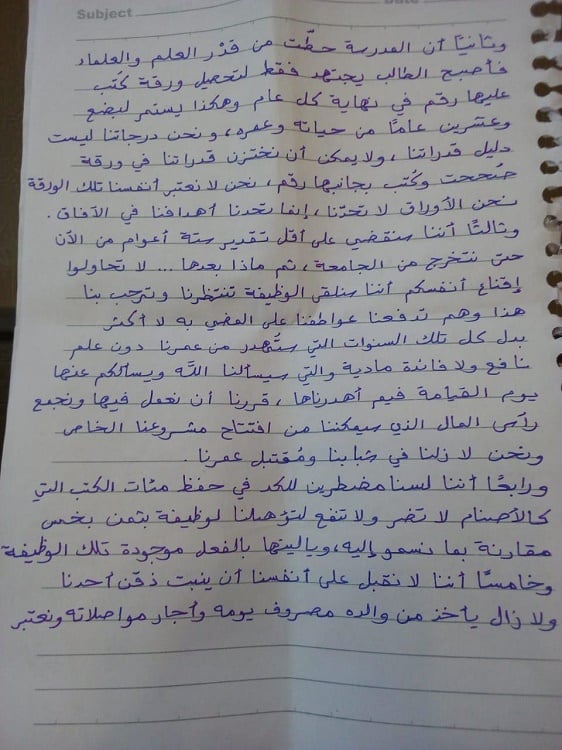 Subject
Date
وثانيًا أن المدرسة حطّت من قدْر العلم والعلماء
فأصبح الطالب يجتهد فقط لتحصيل ورقة كُتب
عليها رقم في نهاية كل عام وهكذا يستمر لبضع
وعشرين عامًا من حياته وعمره، ونحن درجاتنا ليست
دليل قدراتنا، ولا يمكن أن نختزن قدراتنا في ورقة
صُححت وكُتب بجانبها رقم، نحن لا نعتبر أنفسنا تلك الورقة
نحن الأوراق لا تحدّنا، إنما تحدنا أهدافنا في الآفاق.
وثالثًا أننا سنقضي على أقل تقدير ستة أعوام من الآن
حتى نتخرج من الجامعة، ثم ماذا بعدها... لا تحاولوا
إقناع أنفسكم أننا سنلقى الوظيفة تنتظرنا وترحب بنا
هذا وهم تدفعنا عواطفنا على المضي به لا أكثر
بدل كل تلك السنوات التي ستُهدر من عمرنا دون علم
نافع ولا فائدة مادية والتي سيسألنا الله ويسألكم عنها
يوم القيامة فيم أهدرناها، قررنا أن نعمل فيها ونجمع
رأس المال الذي سيمكننا من افتتاح مشروعنا الخاص
ونحن لا زلنا في شبابنا ومُقتبل عمرنا.
ورابعًا أننا لسنا مضطرين للكد في حفظ مئات الكتب التي
كالأصنام لا تضر ولا تنفع لتؤهلنا لوظيفة بثمن بخس
مقارنة بما نسمو إليه، وياليتها بالفعل موجودة تلك الوظيفة
وخامسًا أننا لا نقبل على أنفسنا أن ينبت ذقن أحدنا
ولا زال يأخذ من والده مصروف يومه وأجار مواصلاته ونعتبر